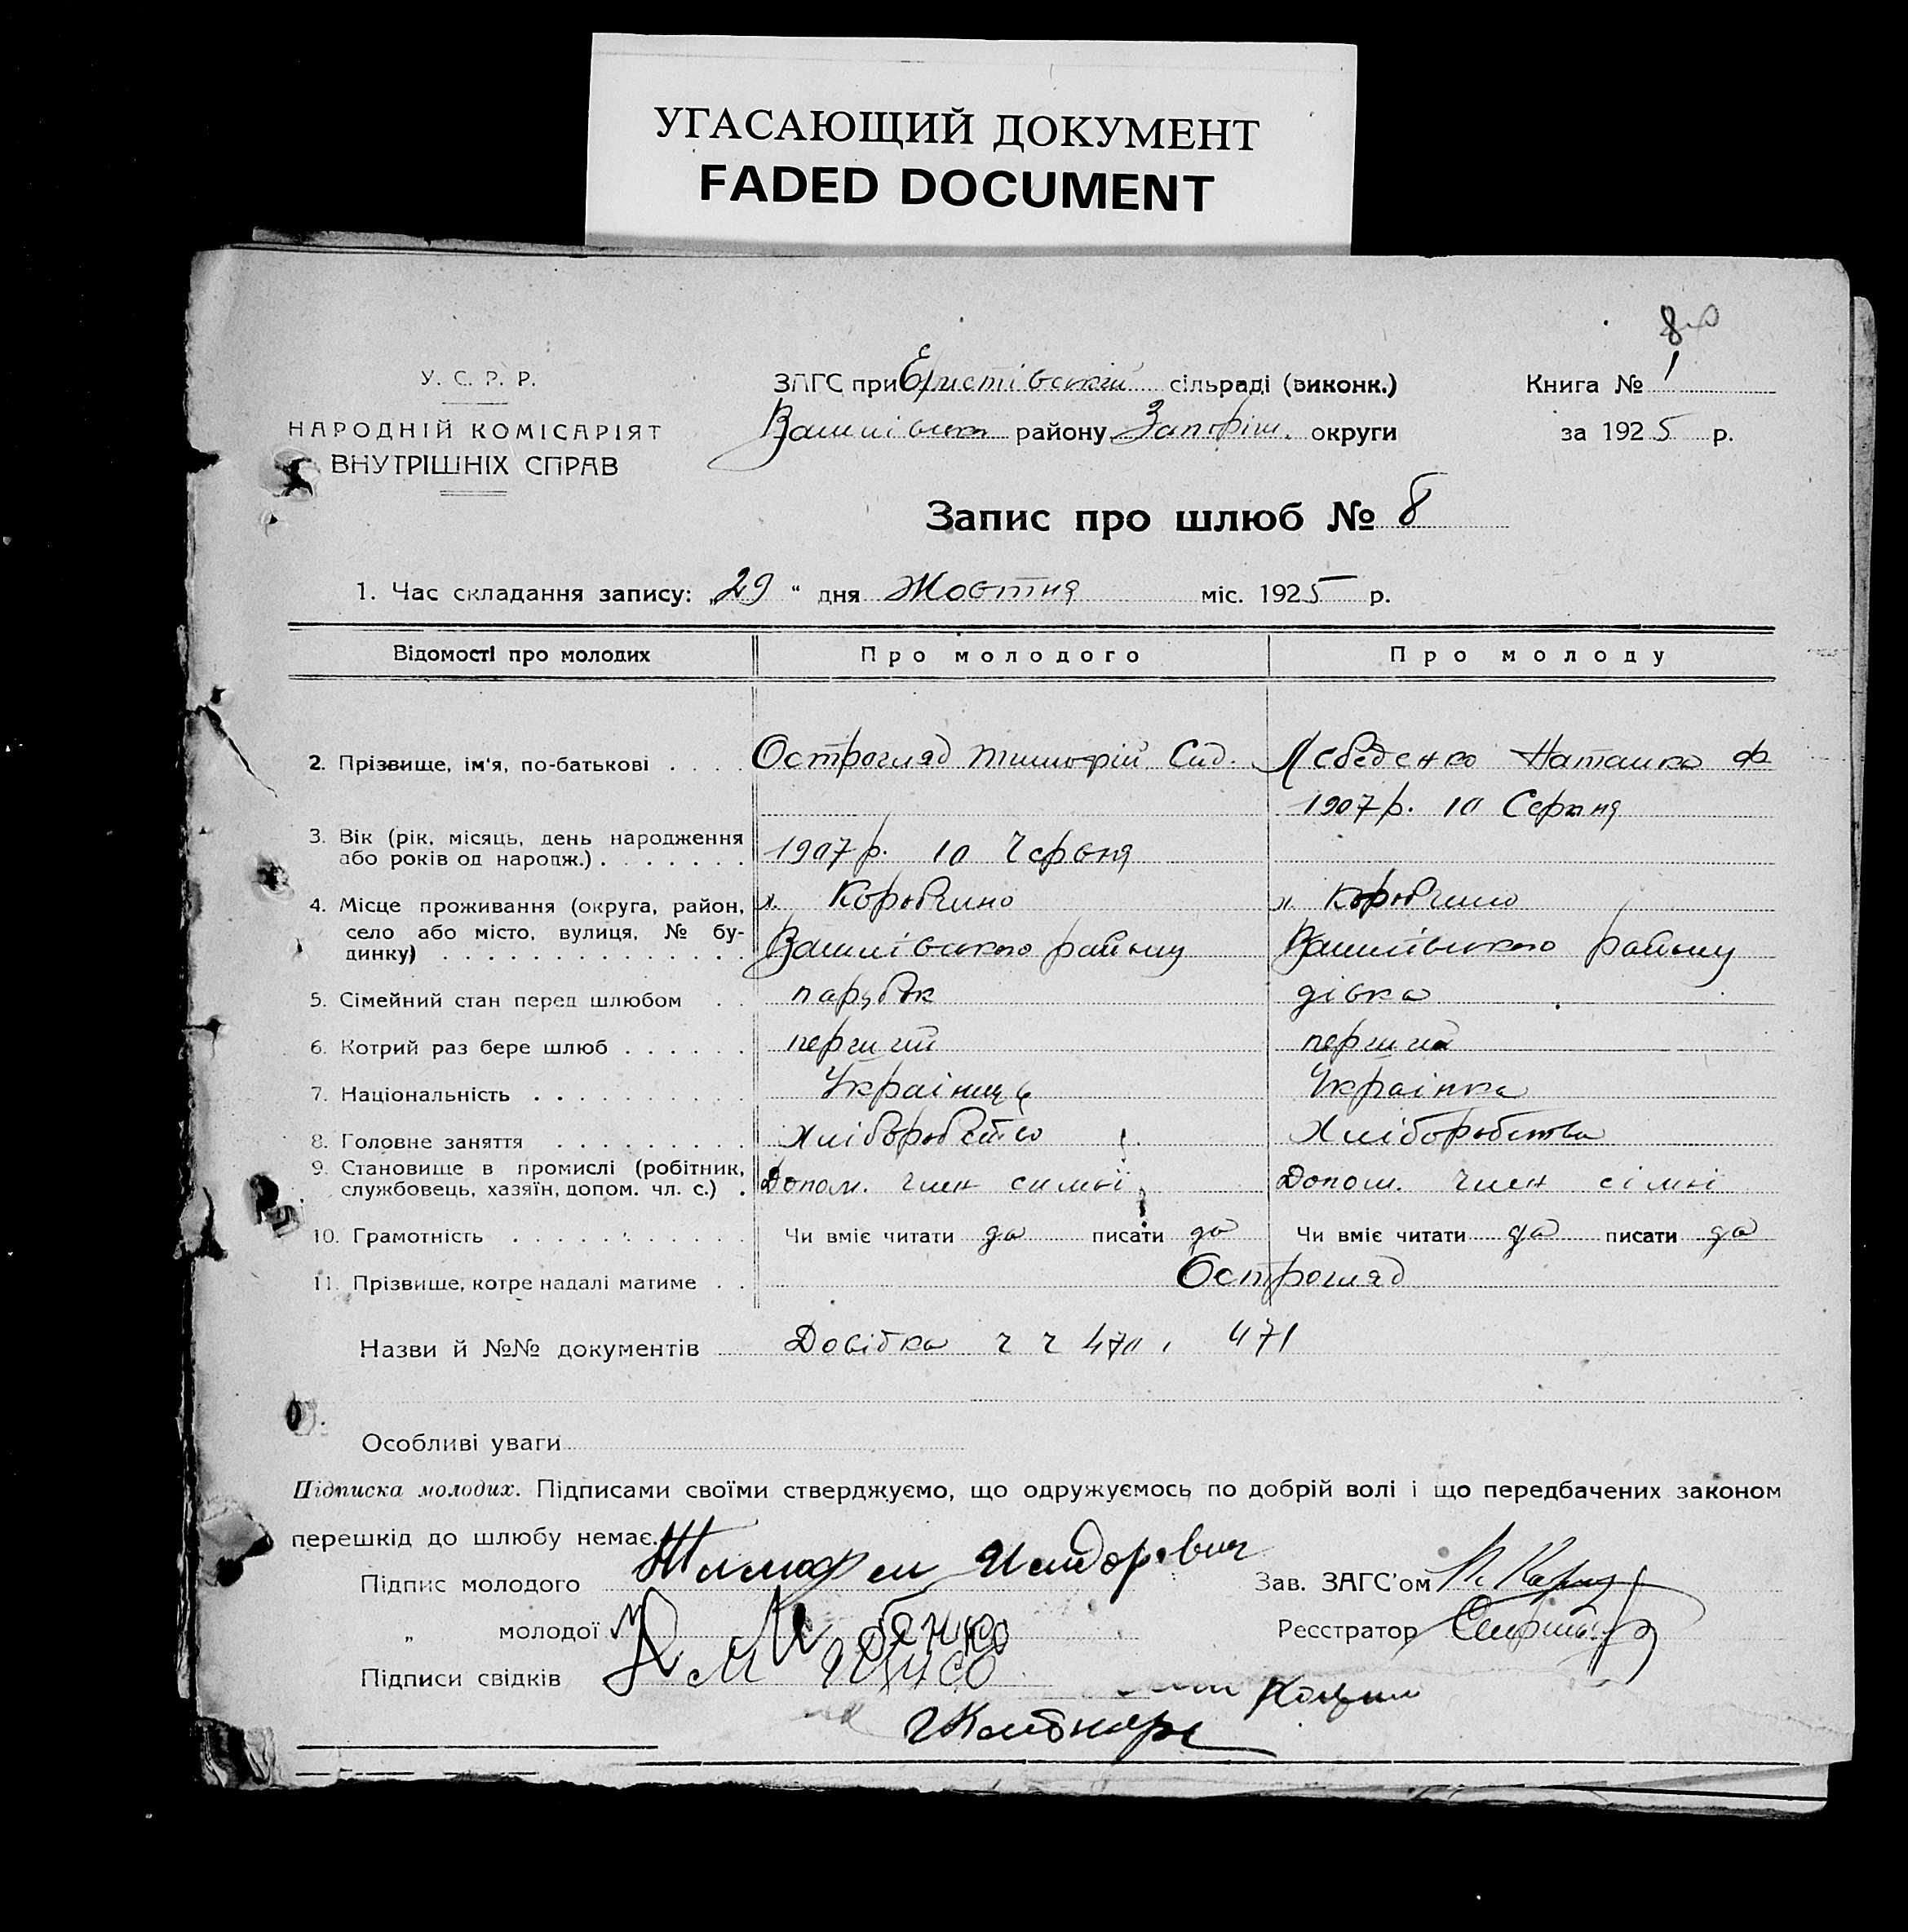 УГАСАЮЩИЙ ДОКУМЕНТ
FADED DOCUMENT
8
У. С. Р. Р.
НАРОДНІЙ КОМІСАРІЯТ
ВНУТРІШНІХ СПРАВ
ЗАГС при Еристівській сільраді (виконк.)
района Запоріж. округи
Книга № 1
за 1925 р.
Запис про шлюб № 8
1. Час складання запису: „29“ дня Жовтня міс. 1925 р.
Відомості про молодих Про молодого Про молоду
2. Прізвище, ім'я, по-батькові . . . . Острогляд Тимофій Сид. Лєбедєнко Наталка Ф
1907 р. 10 Серпня
3. Вік (рік, місяць, день народження
або років од народж.) . . . . . . . 1907 р. 10 Червня
4. Місце проживання (округа, район, х. Коробчино х. Коробчино
село або місто, вулиця, № бу-
динку) . . . . . . . . . . . . . . району району
5. Сімейний стан перед шлюбом . . парубок дівка
6. Котрий раз бере шлюб . . . . . . перший перший
7. Національність . . . . . . . . . . Українець Українка
8. Головне заняття . . . . . . . . . Хліборобство Хліборобства
9. Становище в промислі (робітник,
службовець, хазяїн, допом. чл. с.) . Допом. член симьї Допом. член сімьї
10. Грамотність . . . . . . . . . . . Чи вміє читати да писати да Чи вміє читати да писати да
11. Прізвище, котре надалі матиме . . Острогляд
Назви й №№ документів Довідка ч ч 470 і 471
Особливі уваги
Підписка молодих. Підписами своїми стверджуємо, що одружуємось по добрій волі і що передбачених законом
перешкід до шлюбу немає.
Підпис молодого Зав. ЗАГС'ом
„ молодої Реєстратор
Підписи свідків